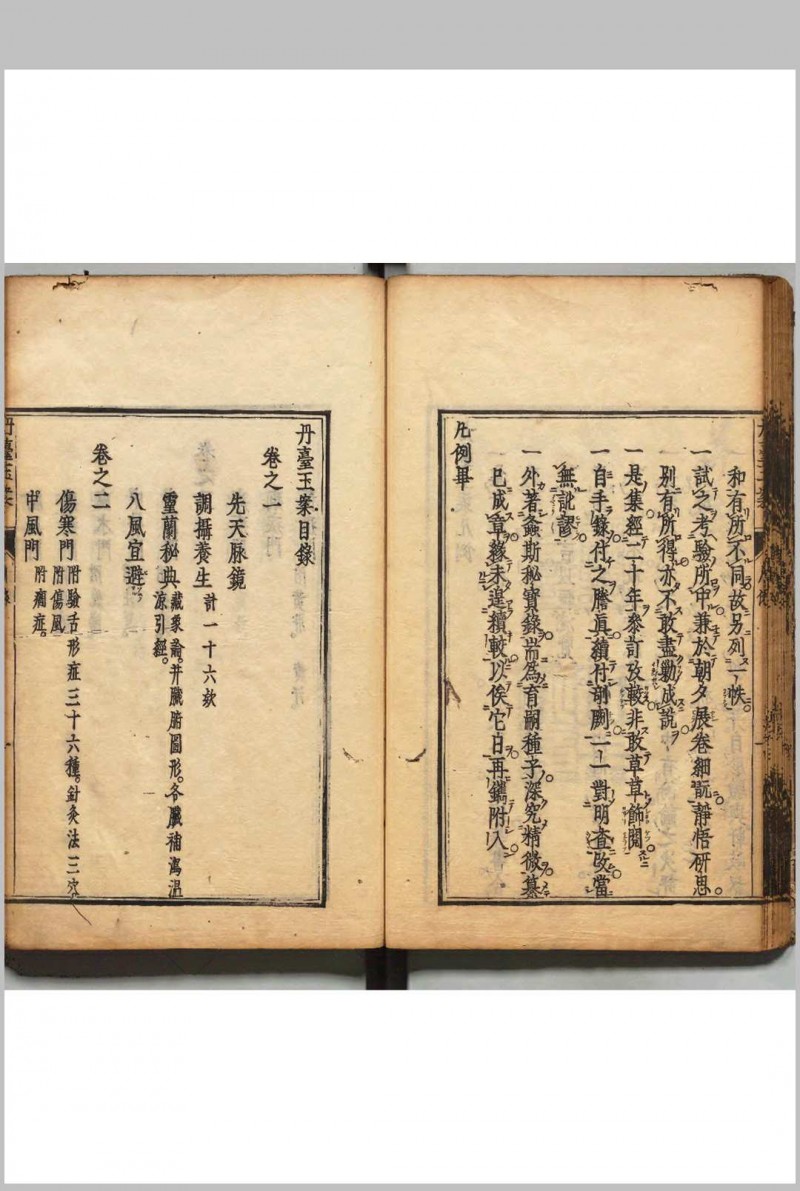 和有所不同故另列一帙
一試之考驗所中兼於朝夕展卷細翫靜悟研思
別有所得亦不敢盡勦成說
一是集經二十年參訂攷較非敢草草飾閱
一自手錄付之謄真續付剞劂一一對明查改當
無訛謬
一外著螽斯秘寶錄耑為育嗣種子深究精微纂
已成章緣未遑續較以俟它日再鐫附入
凡例畢
丹臺玉案目錄
卷之一
先天脉鏡
調攝養生 計一十六欵
靈蘭秘典 藏象論并臟腑圖形各臟補瀉溫
涼引經
八風宜避
卷之二
傷寒門 附驗舌形症三十六種針灸法三穴
附傷風
中風門 附癇症
丹臺玉案